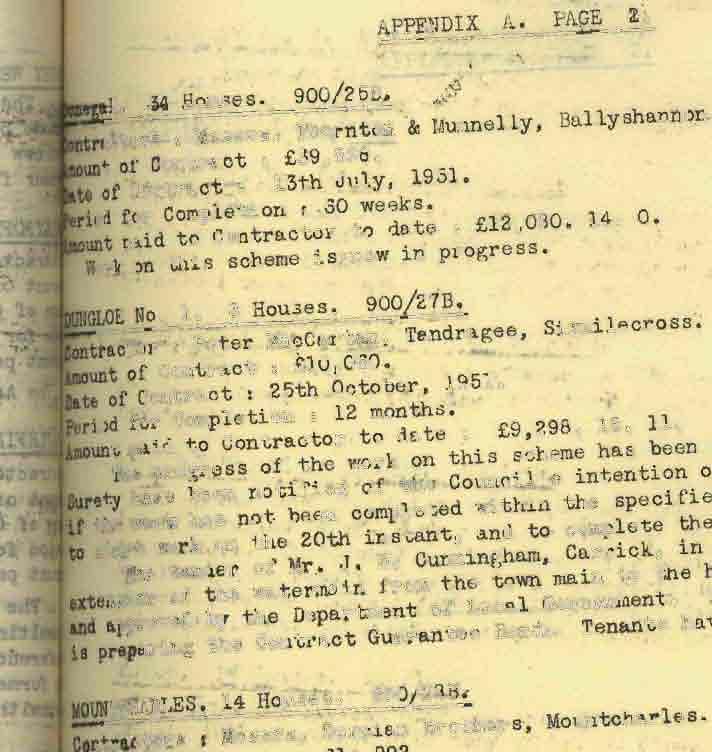 APPENDIX A. PAGE 2
Donegal. 34 Houses. 900/26B.
Contractors : Messrs. & Munnelly, Ballyshannon.
Amount of Contract : £39
Date of Contract : 13th July, 1951.
Period for Completion : 60 weeks.
Amount paid to Contractor to date : £12,080. 14. 0.
Work on this scheme is now in progress.
DUNGLOE No 1. Houses. 900/27B.
Contractor : Peter Tendragee,
Amount of Contract : £10,060.
Date of Contract : 25th October, 1951.
Period for Completion : 12 months.
Amount paid to Contractor to date : £9,298. 11.
The progress of the work on this scheme has been
Surety have been notified of the Council's intention
if the work has not been completed within the specifie
to work on the 20th instant, and to complete the
The tender of Mr. J. Cunningham, Carrick, in
extension of the watermain from the town main to the h
and approved by the Department of Local Government
is preparing the Contract Guarantee Bond. Tenants hav
MOUNTCHARLES. 14 Houses.
Contractors : Messrs. Brothers, Mountcharles.